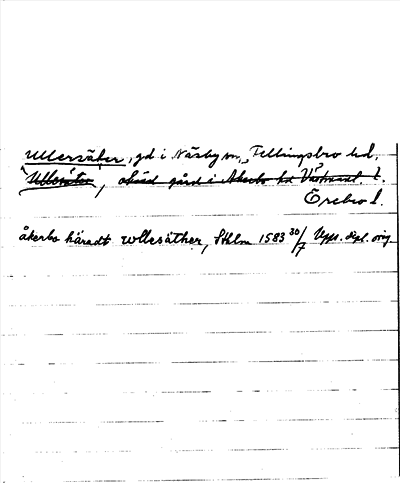 Ullersäter, gd i Näsby sn, Fellingsbro hd,
"Ullersäter", okänd gård i Åkerbo hd Västmanl. l.
Örebro l.
åkerbo häradt wllesäther, Sthlm 1583 30/7 Upps. dipl. orig